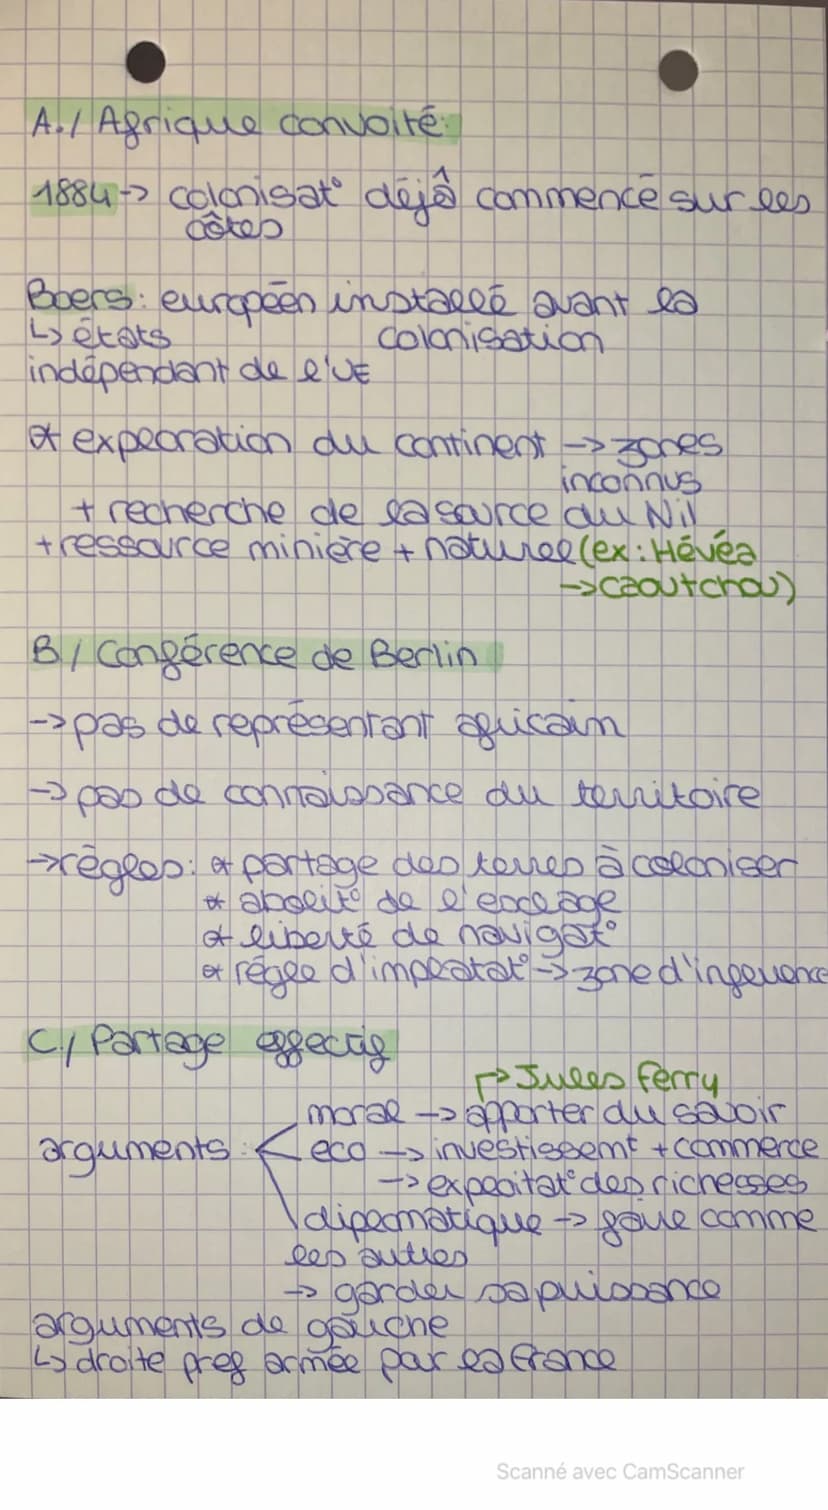 A./ Afrique convoité:
1884 -> colonisat° déjà commencé sur les
côtes
Boers: européen installé avant la
↳ états colonisation
indépendant de l'UE
* exploration du continent -> zones
inconnus
+ recherche de la source du Nil
+ ressource minière + naturel (ex: Hévéa
-> caoutchou)
B/ Conférence de Berlin
-> pas de représentant africain
-> pas de connaissance du territoire
-> règles: * partage des terres à coloniser
* abolit° de l'esclage
* liberté de navigat°
* régle d'implatat° -> zone d'infuence
C./ Partage effectif
↱ Jules Ferry
moral -> apporter du savoir
arguments: eco -> investissemt + commerce
-> exploitat° des richesses
diplomatique -> faire comme
les autres
-> garder sa puissance
arguments de gauche
↳ droite pref armée par la France
Scanné avec CamScanner